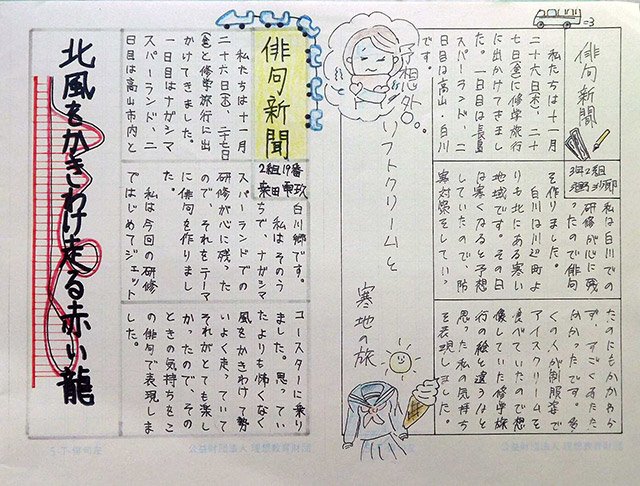 俳句新聞
2組
私たちは十一月
二十六日(木)、二十
七日(金)に修学旅行
に出かけてきまし
た。一日目は長島
スパーランド、二
日目は高山・白川
郷
です。
私は白川での
研修が心に残
ったので俳句
を作りました。
白川は川辺町よ
りも北にある寒い
地域です。その日
は寒くなると予想
していたので、防
寒対策をしてい
たのにもかかわら
ず、すごくあたた
かかったです。多
くの人が制服姿で
アイスクリームを
食べていたので想
像していた修学旅
行の絵と違うなと
思った私の気持ち
を表現しました。
予想外。
ソフトクリームと
寒地の旅
俳句新聞
2組19番
私たちは十一月
二十六日(木)、二十七日
(金)と修学旅行に出
かけてきました。
一日目はナガシマ
スパーランド、二
日目は高山市内と
白川郷です。
私はそのう
ちで、ナガシマ
スパーランドでの
研修が心に残った
ので、それをテーマ
に俳句を作りまし
た。
私は今回の研修
ではじめてジェット
コースターに乗り
ました。思ってい
たよりも怖くなく
風をかきわけて勢
いよく走っていて
それがとても楽し
かったので、その
ときの気持ちをこ
の俳句で表現しま
した。
北風をかきわけ走る赤い龍
公益財団法人 理想教育財団
公益財団法人 理想教育財団